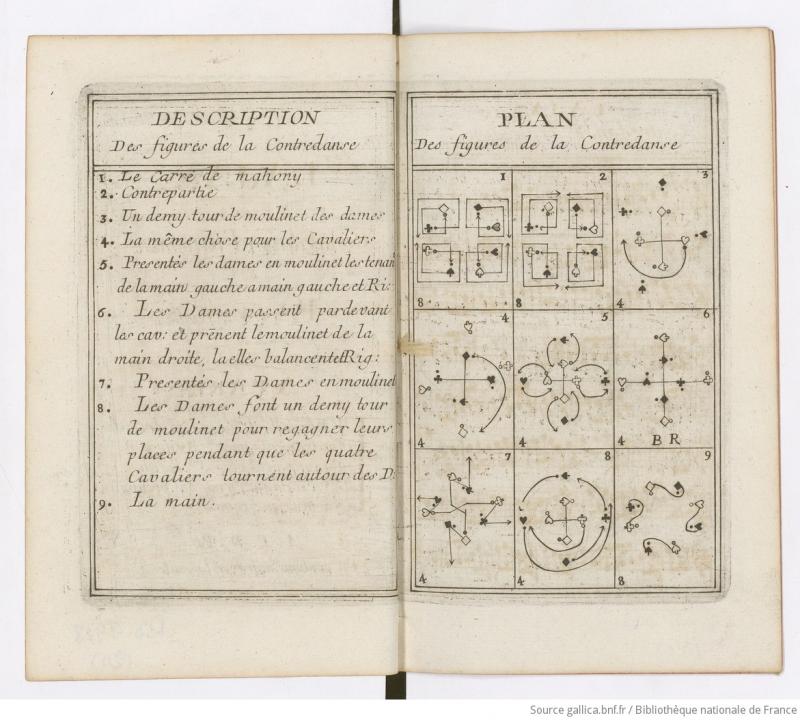 DESCRIPTION
Des figures de la Contredanse
1. Le Carré de mahony
2. Contrepartie
3. Un demy tour de moulinet des dames
4. La même chose pour les Cavaliers
5. Presentés les dames en moulinet les tenan
de la main gauche a main gauche et Ri
6. Les Dames passent par devant
les cav: et prēnent le moulinet de la
main droite, la elles balancent et Rig:
7. Presentés les Dames en moulinet
8. Les Dames font un demy tour
de moulinet pour regagner leurs
places pendant que les quatre
Cavaliers tournent autour des D:
9. La main.
PLAN
Des figures de la Contredanse
1 2 3
8 8 4
4 5 6
B R
4 4 4
7 8 9
4 4 8
Source gallica.bnf.fr / Bibliothèque nationale de France